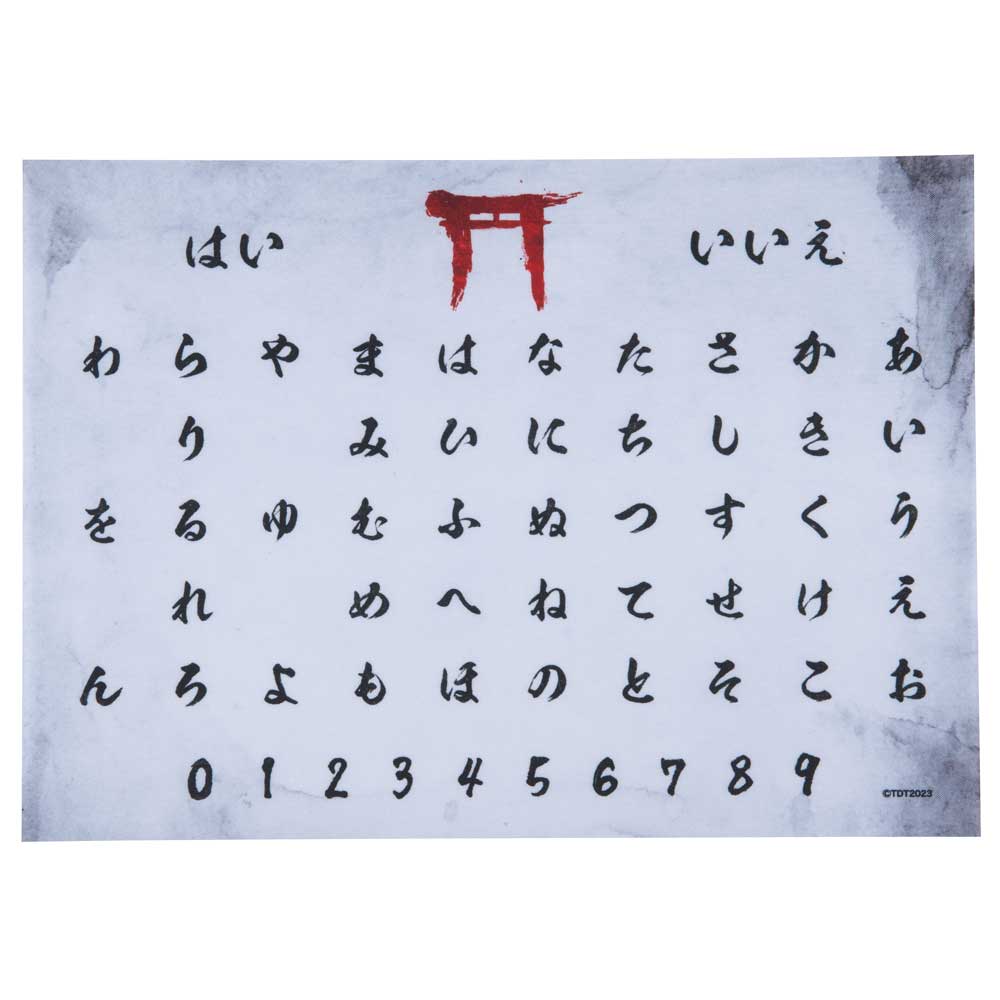 はい いいえ
わ ら や ま は な た さ か あ
り み ひ に ち し き い
を る ゆ む ふ ぬ つ す く う
れ め へ ね て せ け え
ん ろ よ も ほ の と そ こ お
0 1 2 3 4 5 6 7 8 9
©TDT2023